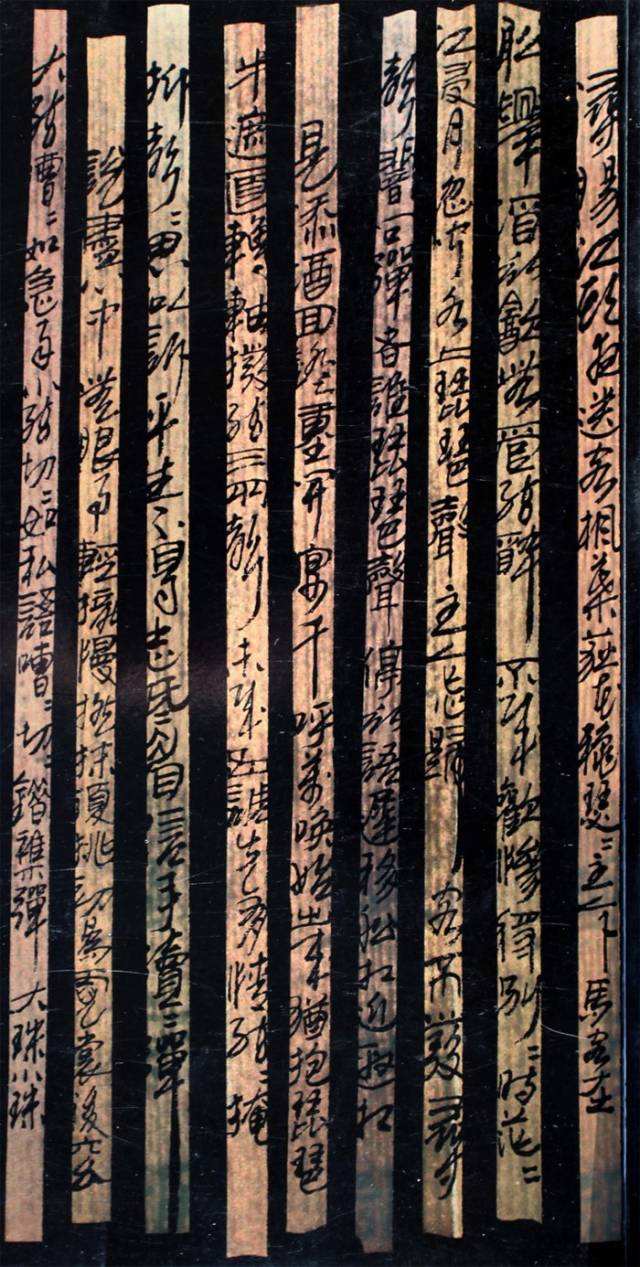 潯陽江頭夜送客楓葉荻花穐瑟〻主人下馬客在
船舉酒欲飲無管弦醉不成歡慘將別〻時茫〻
江浸月忽聞水上琵琶聲主人忘歸客不發尋
聲暗問彈者誰琵琶聲停欲語遲移船相近邀相
見添酒回燈重開宴千呼萬喚始出來猶抱琵琶
半遮面轉軸撥弦三兩聲未成曲調先有情弦〻掩
抑聲〻思似訴平生不得志低眉信手續〻彈
說盡心中無限事輕攏慢撚抹復挑初爲霓裳後六幺
大弦嘈〻如急雨小弦切〻如私語嘈〻切〻錯雜彈大珠小珠